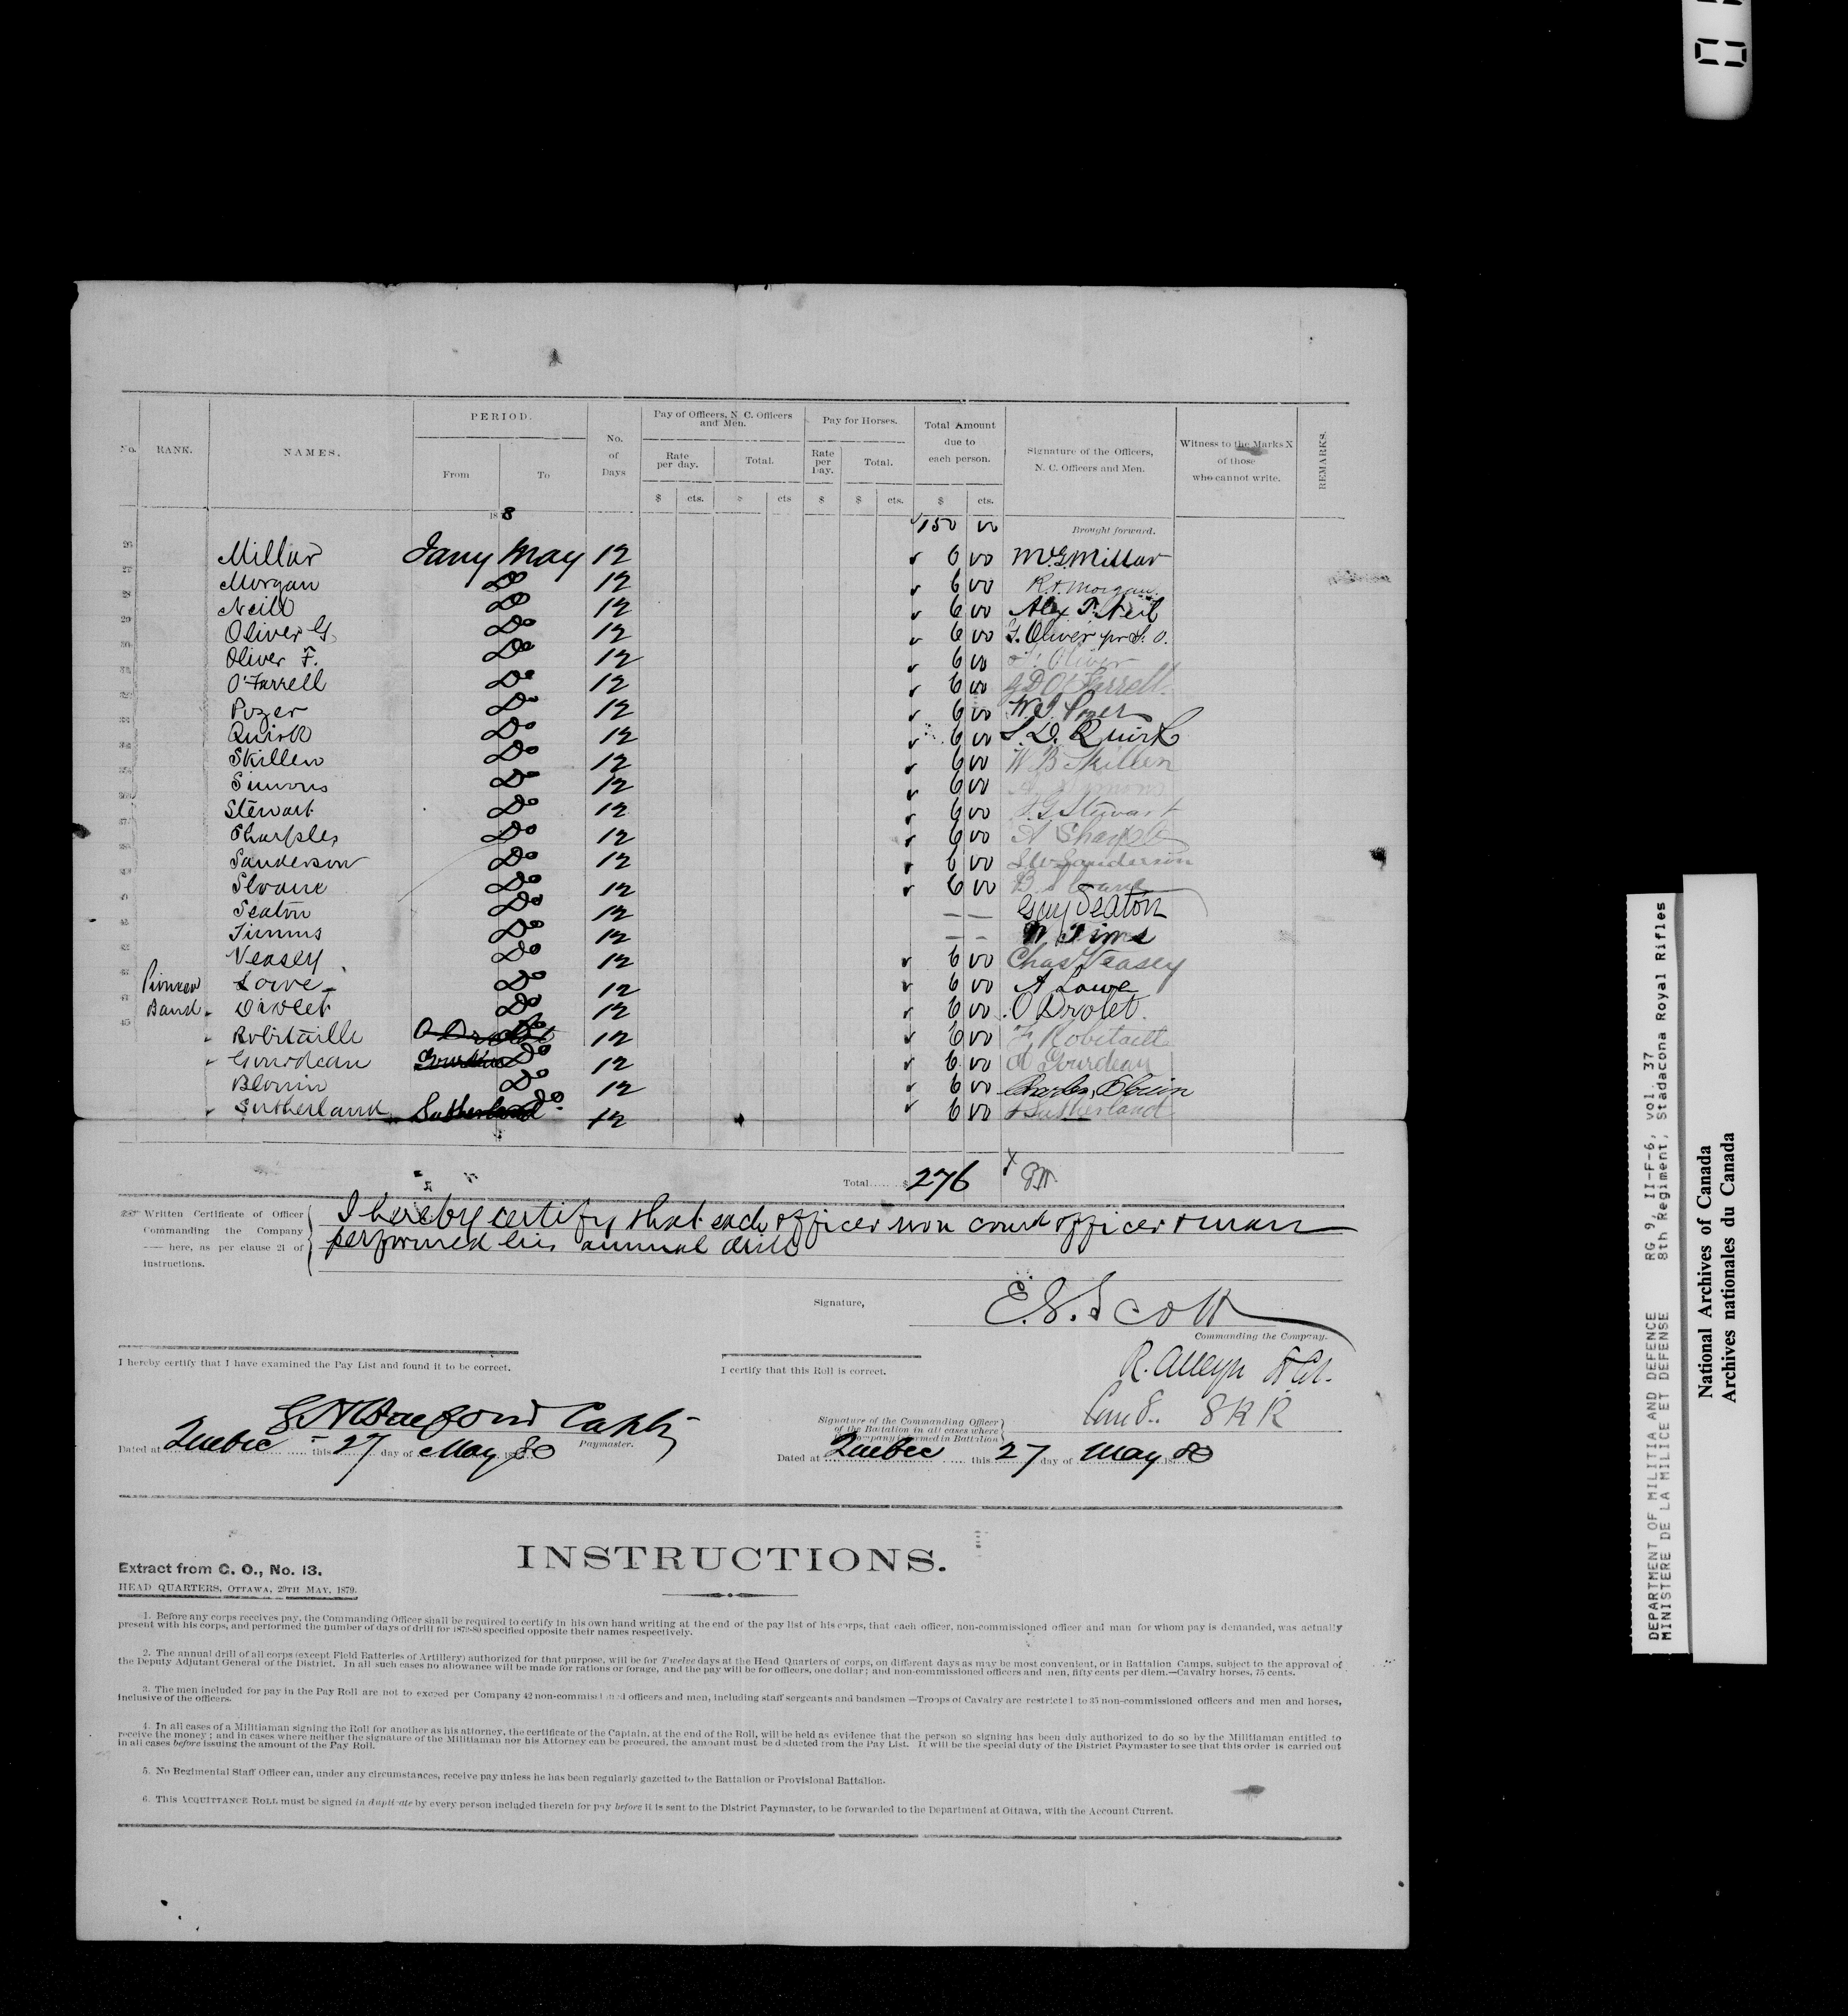 No. RANK. NAMES. PERIOD. From To No. of Days Pay of Officers, N. C. Officers and Men. Rate per day. Total. Pay for Horses. Rate per Day. Total. Total Amount due to each person. Signature of the Officers, N. C. Officers and Men. Witness to the Marks X of those who cannot write. REMARKS.
$ cts. $ cts $ $ cts. $ cts.
188
150 00 Brought forward.
26 Millar Jany May 12 6 00 Millar
27 Morgan Do 12 6 00 R. H. Morgan
28 Neill Do 12 6 00 Alex P. Neil
29 Oliver G. Do 12 6 00 G. Oliver pr F. O.
30 Oliver F. Do 12 6 00 F. Oliver
31 O'Farrell Do 12 6 00 O'Farrell
32 Pozer Do 12 6 00 Pozer
33 Quirk Do 12 6 00 Quirk
34 Skillen Do 12 6 00 W B Skillen
Simons Do 12 6 00
Stewart Do 12 6 00 Stewart
37 Sharples Do 12 6 00 A Sharples
Sanderson Do 12 6 00 Sanderson
Sloane Do 12 6 00 B Sloane
Seaton Do 12 — — Guy Seaton
Timms Do 12 — — Tims
Veasey Do 12 6 00 Chas Veasey
Pioneer Lowe Do 12 6 00 A Lowe
Band Drolet Do 12 6 00 O Drolet.
Robitaille O Drolet Do 12 6 00 Robitaille
Gourdeau Gourdeau Do 12 6 00 Gourdeau
Blouin Do 12 6 00 Charles Blouin
Sutherland Sutherland Do 12 6 00 Sutherland
Total......$ 276
Written Certificate of Officer Commanding the Company —— here, as per clause 21 of Instructions.
I hereby certify that each officer non comd officer & man
performed his annual drill
Signature, E. S. Scott
Commanding the Company.
I hereby certify that I have examined the Pay List and found it to be correct.
I certify that this Roll is correct.
R. Alleyn Lt Col.
Com 8.. 8 R R
Capt
Paymaster.
Signature of the Commanding Officer of the Battalion in all cases where the Company is formed in Battalion
Dated at Quebec this 27 day of May 1880
Dated at Quebec this 27 day of May 1880
INSTRUCTIONS.
Extract from C. O., No. 13.
HEAD QUARTERS, OTTAWA, 29TH MAY, 1879.
1. Before any corps receives pay, the Commanding Officer shall be required to certify in his own hand writing at the end of the pay list of his corps, that each officer, non-commissioned officer and man for whom pay is demanded, was actually
present with his corps, and performed the number of days of drill for 1879-80 specified opposite their names respectively.
2. The annual drill of all corps (except Field Batteries of Artillery) authorized for that purpose, will be for Twelve days at the Head Quarters of corps, on different days as may be most convenient, or in Battalion Camps, subject to the approval of
the Deputy Adjutant General of the District. In all such cases no allowance will be made for rations or forage, and the pay will be for officers, one dollar; and non-commissioned officers and men, fifty cents per diem.—Cavalry horses, 75 cents.
3. The men included for pay in the Pay Roll are not to exceed per Company 42 non-commissioned officers and men, including staff sergeants and bandsmen —Troops of Cavalry are restricted to 35 non-commissioned officers and men and horses,
inclusive of the officers.
4. In all cases of a Militiaman signing the Roll for another as his attorney, the certificate of the Captain, at the end of the Roll, will be held as evidence that the person so signing has been duly authorized to do so by the Militiaman entitled to
receive the money; and in cases where neither the signature of the Militiaman nor his Attorney can be procured, the amount must be deducted from the Pay List. It will be the special duty of the District Paymaster to see that this order is carried out
in all cases before issuing the amount of the Pay Roll.
5. No Regimental Staff Officer can, under any circumstances, receive pay unless he has been regularly gazetted to the Battalion or Provisional Battalion.
6. This ACQUITTANCE ROLL must be signed in duplicate by every person included therein for pay before it is sent to the District Paymaster, to be forwarded to the Department at Ottawa, with the Account Current.
DEPARTMENT OF MILITIA AND DEFENCE RG 9, II-F-6, vol. 37
MINISTERE DE LA MILICE ET DEFENSE 8th Regiment, Stadacona Royal Rifles
National Archives of Canada
Archives nationales du Canada